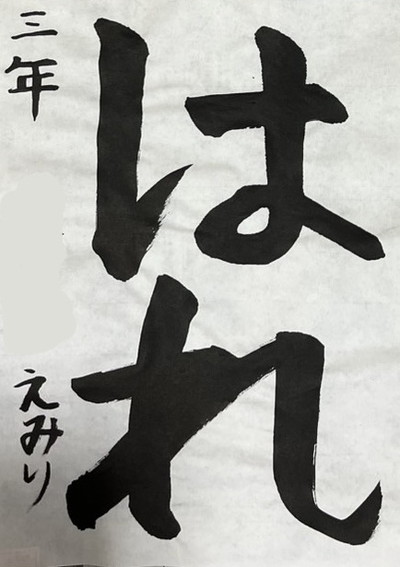 はれ
三年 えみり